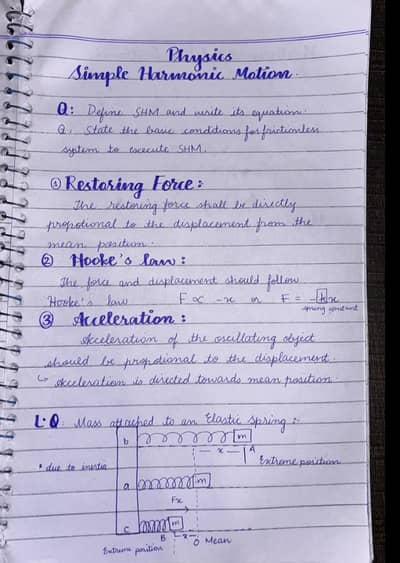 Physics
Simple Harmonic Motion.
Q: Define SHM and write its equation.
Q. State the basic conditions for frictionless
system to execute SHM.
① Restoring Force:
The restoring force shall be directly
propotional to the displacement from the
mean position.
② Hooke's law:
The force and displacement should follow
Hooke's law F ∝ -x or F = -kx
spring constant
③ Acceleration:
Acceleration of the oscillating object
should be propotional to the displacement.
↳ Acceleration is directed towards mean position.
L.Q: Mass attached to an Elastic spring:-
b m
x A
Extreme position
* due to inertia
a m
Fx
c m
B x
O Mean
Extreme position